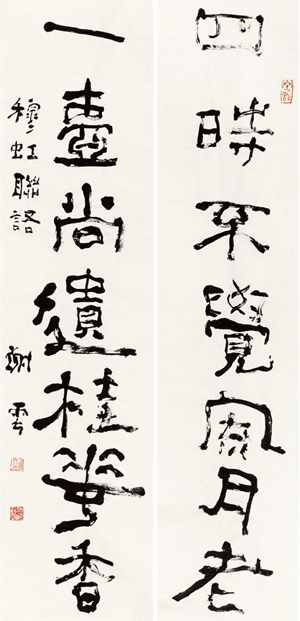 四時不覺風月老
一壺尚遺桂華香
穆虹聯語
謝雲